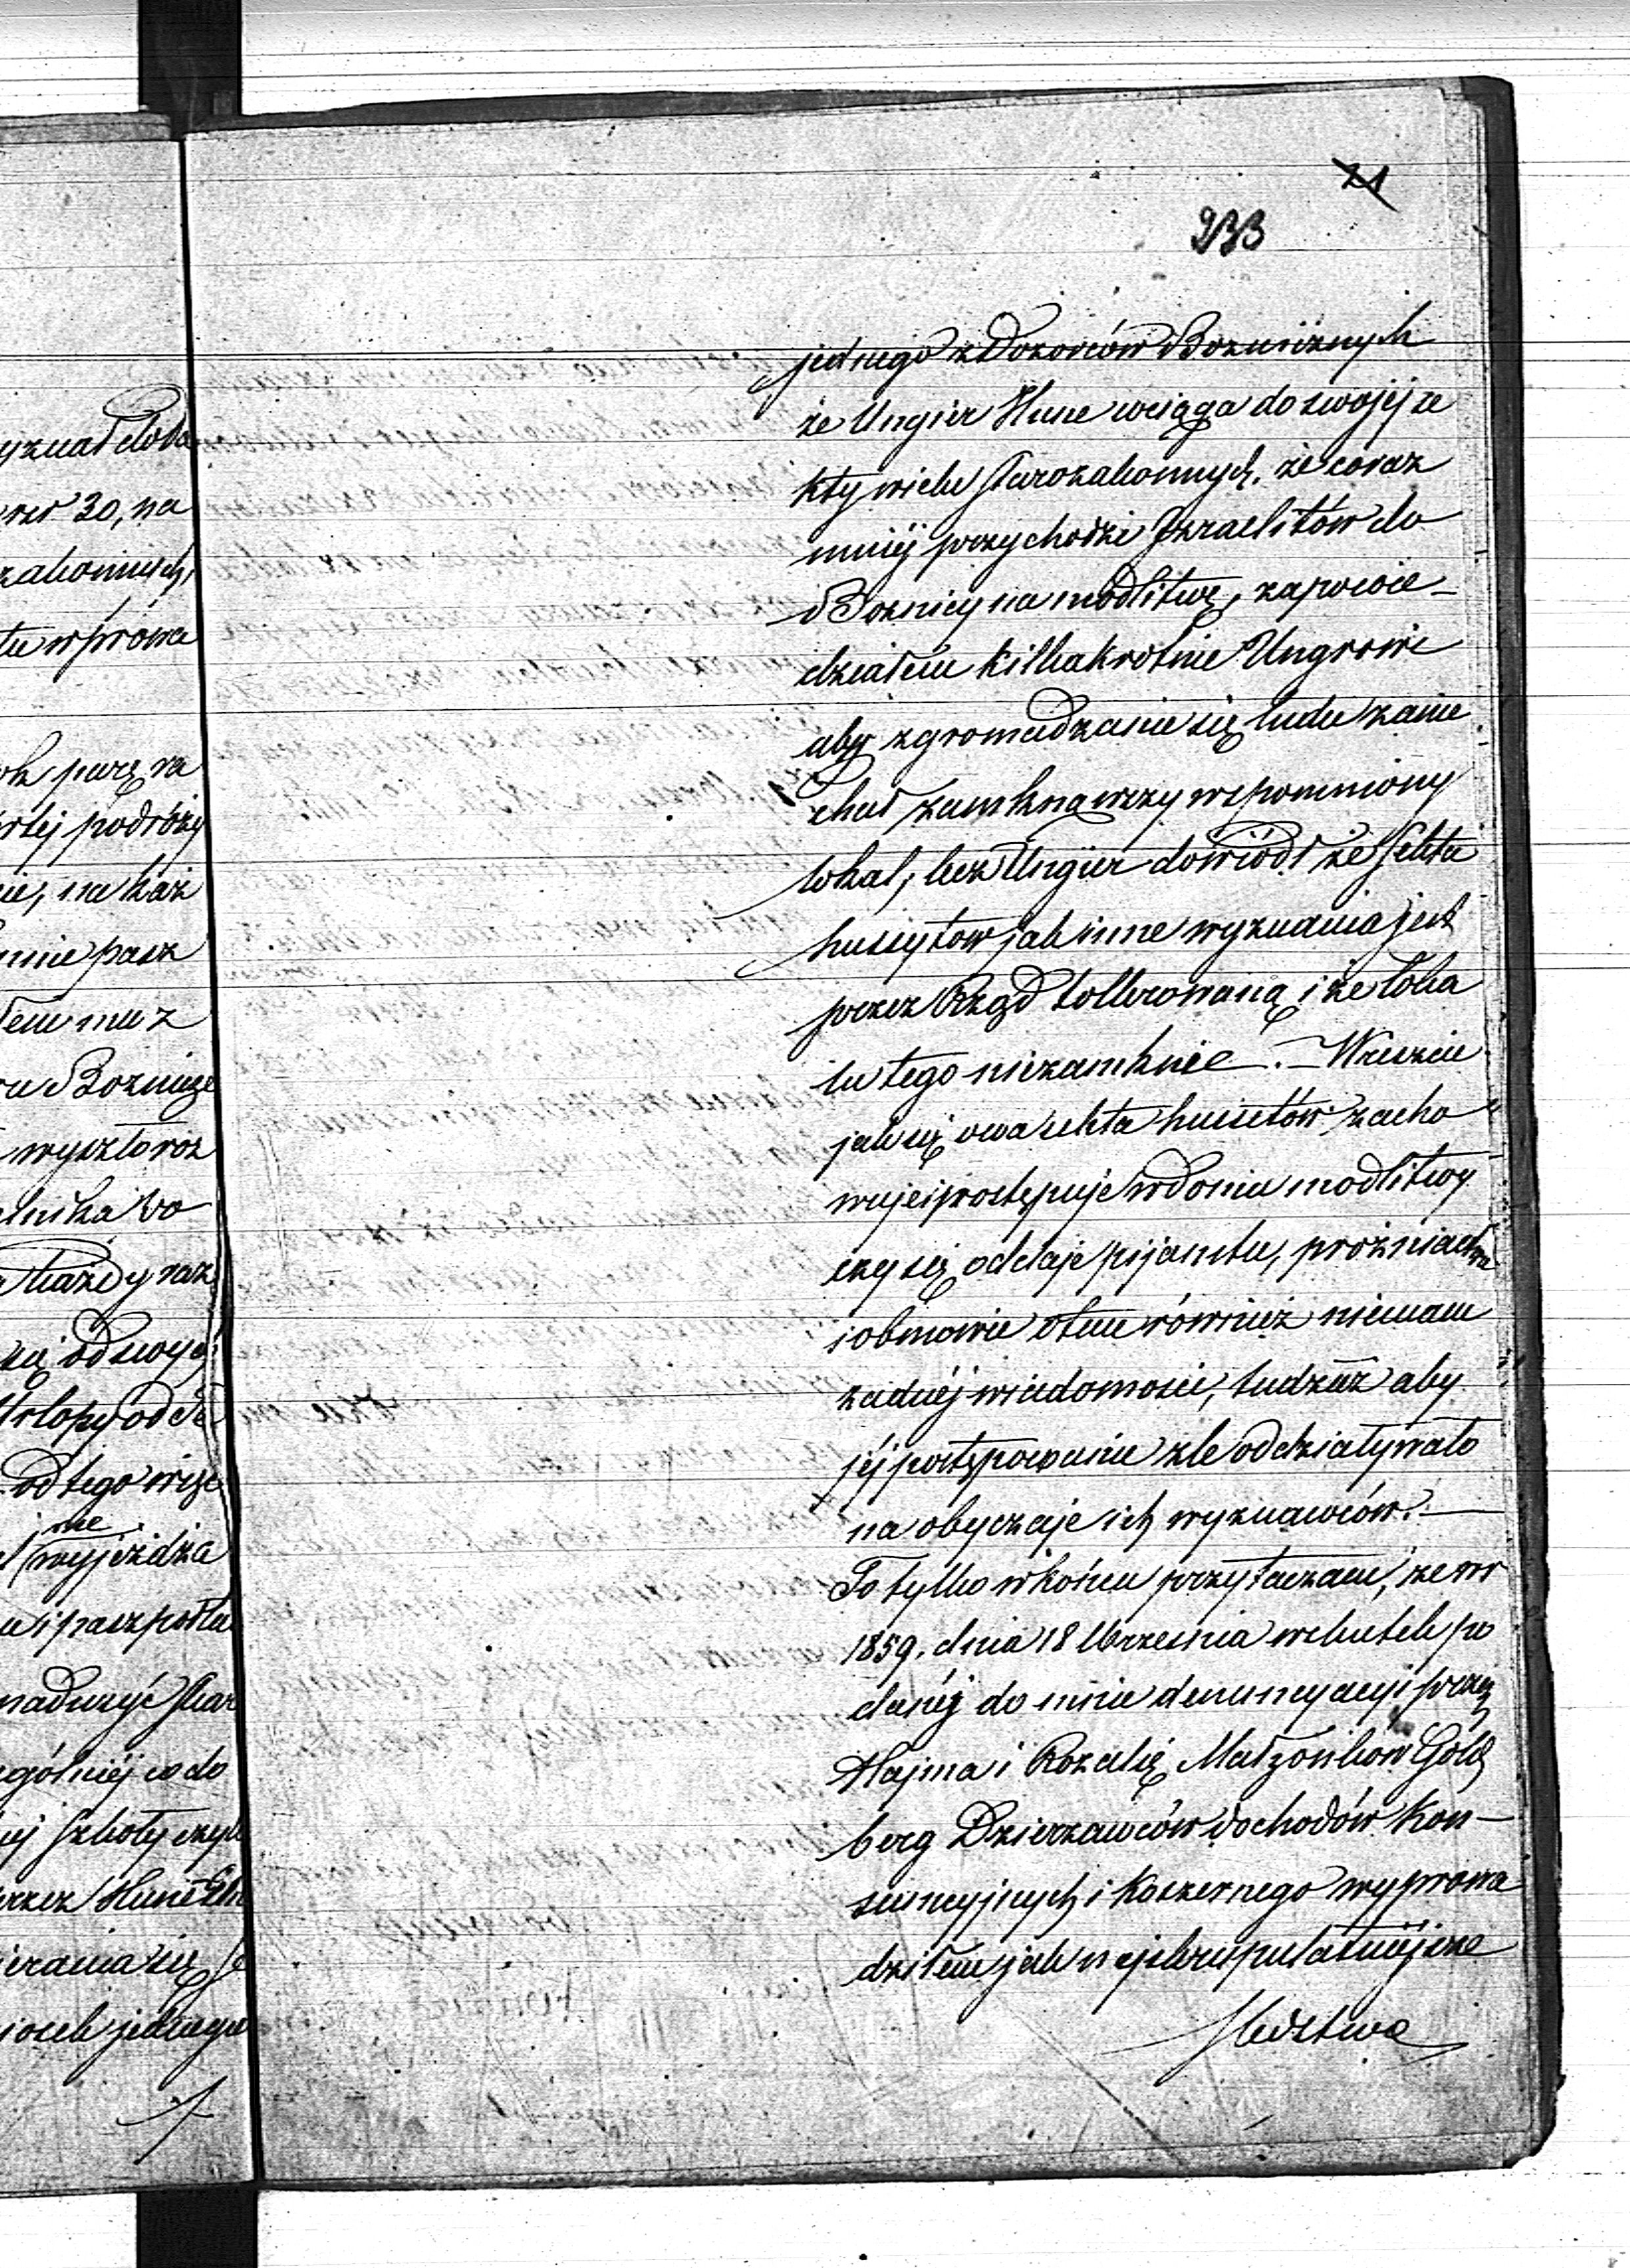 21
233
jednego z Dozorców Bozniznych
że Ungier Hune wciąga do swojej se
kty wielu starozakonnych, że coraz
mniéj przychodzi Izraelitów do
Boznicy na modlitwę, zapowie-
działem kilkakrotnie Ungrowi
aby zgromadzanie się ludu zanie
chał zamknąwszy wspomniony
lokal, lecz Ungier dowiódł że sekta
husytow jak inne wyznania jest
przez Rząd tollerowaną i że loka
lu tego niezamknie. – Wreszcie
jak się owa sekta husetów zacho
wuje i postępuje w domu modlitwy
czy się oddaje pijanstu, prożniactwu
i obmowie o tem również niemam
zadnéj wiadomości, tudzież aby
jéj postępowanie zle oddziatywało
na obyczaje ich wyznawców. –
To tylko w końcu przytaczam, że w r
1859. dnia 18 Września w skutek po
danéj do mnie denuncyacyi przez
Hajma i Rozalię Małzonków Gold
berg Dzierzawców dochodów Kon-
sumcyjnych i Koszernego wyprowa
dziłem jak najskrupulatniéjsze
Sledztwo
yznał doda
30, na
zakonnych,
tu wprowa
parę ra
podróży
na każ
mnie pasz
mu z
Boznicze
każdy raz
się od swych
Urlopy od
od tego więc
nie
wyjeżdża
i paszportu
nadużyć star
gólniéj co do
Szkoły czyli
przez Hune Un
ierania się se
jednego